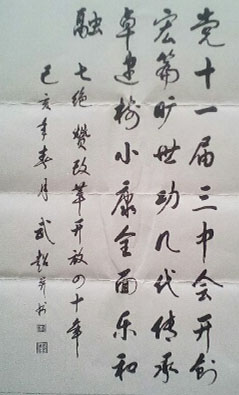 党十一届三中会开创
宏篇旷世功几代传承
卓建构小康全面乐和
融
七绝 赞改革开放四十年
己亥年春月 武超 书